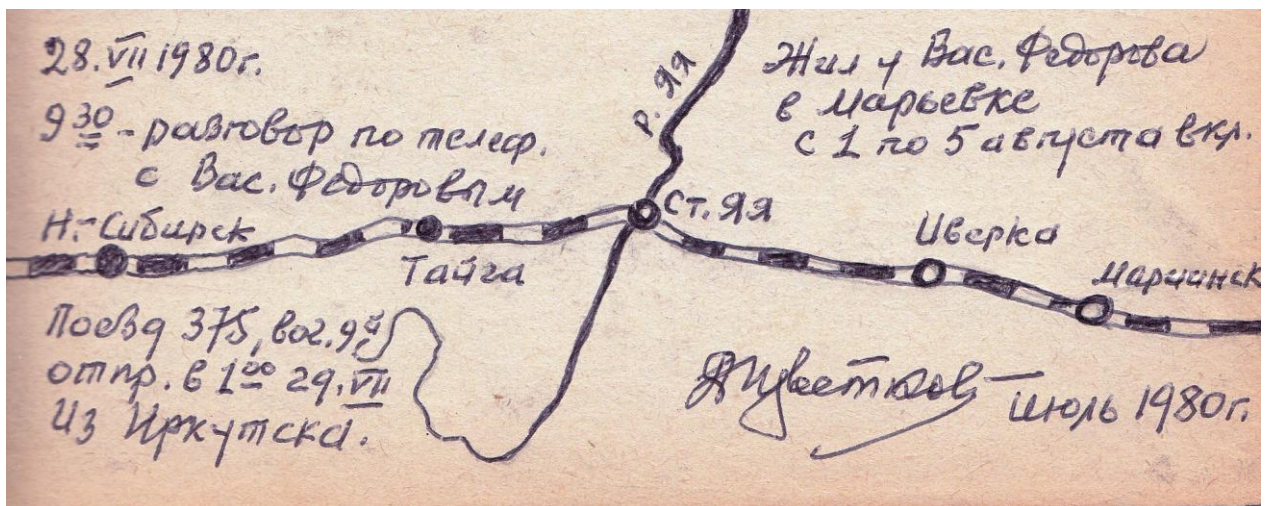 28.VII 1980г.
9 30 - разговор по телеф.
с Вас. Федоровым
Жил у Вас. Федорова
в Марьевке
с 1 по 5 августа вкл.
р. Яя
Н.-Сибирск
Тайга
Ст. Яя
Иверка
Мариинск
Поезд 375, ваг. 9й
отпр. в 1 00 29.VII
Из Иркутска.
АЦветков
июль 1980г.